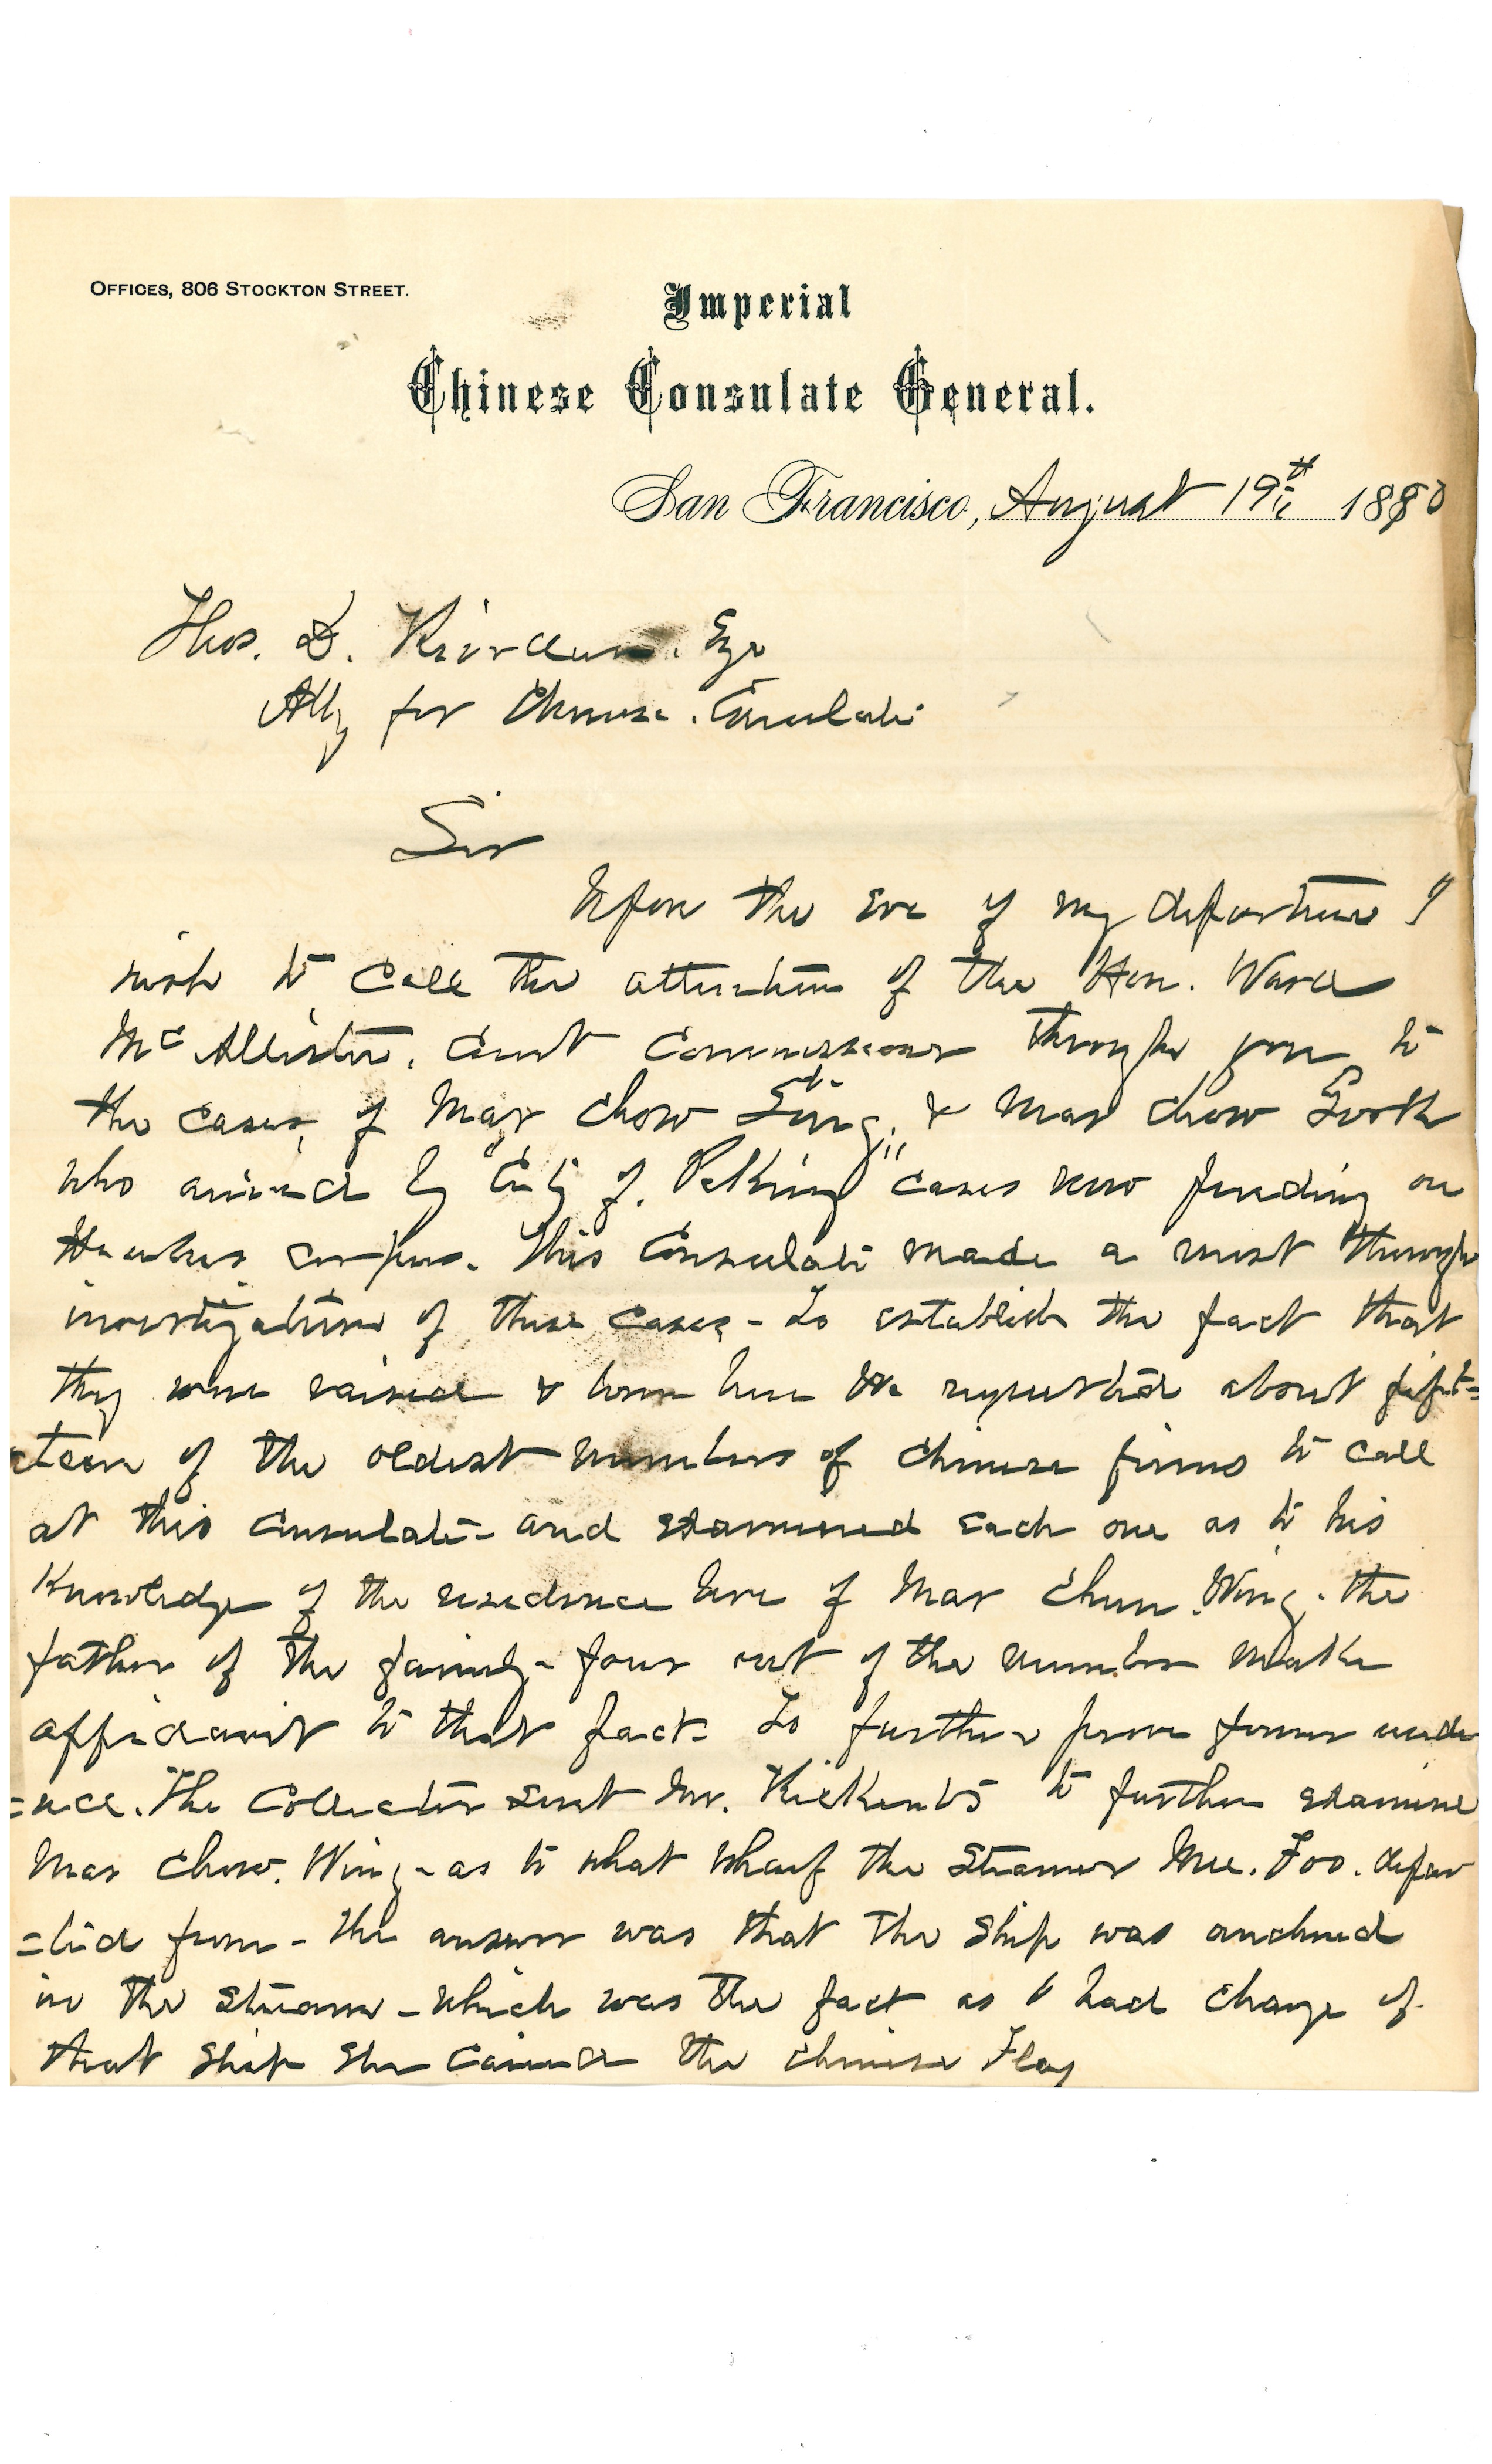 OFFICES, 806 STOCKTON STREET.
Imperial
Chinese Consulate General.
San Francisco, August 19th 1890
Thos. D. Riordan. Esqr
Atty for Chinese. Consulate
Sir
Upon the eve of my departure I
wish to call the attention of the Hon. Ward
McAllister. Court Commissioner through you to
the cases, of Mar Chow & Mar Chow
who arrived by "City of. Peking" cases now pending on
Heabus corpus. This Consulate made a most through
investigation of these cases - To establish the fact that
they were raised & born here We requested about fift=
=teen of the oldest members of Chinese firms to call
at this Consulate - and examined each one as to his
Knowledge of the residence here of Mar Chow. Wing. the
father of the family - four out of the number make
affidavit to that fact - To further prove former reside
=nce. The Collector sent Mr. to further examine
Mar Chow. Wing - as to what wharf the Steamer Mee. Foo. depar
=ted from - the answer was that the Ship was anchored
in the Stream - which was the fact as I had charge of
that Ship She carried the Chinese Flag